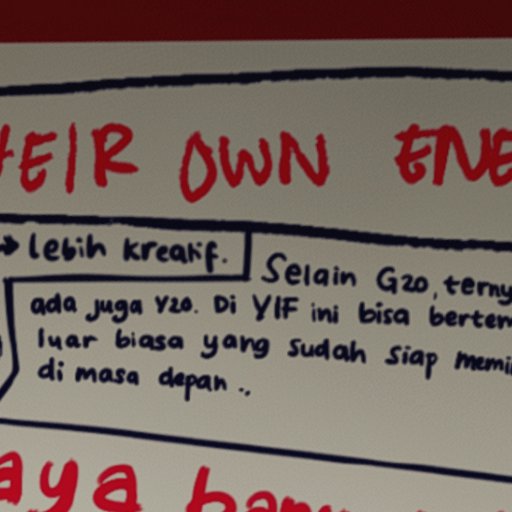 HEIR OWN ENE
→ lebih kreatif.
Selain G20, terny
ada juga Y20. Di YIF ini bisa bertem
luar biasa yang sudah siap memi
di masa depan ..
aya